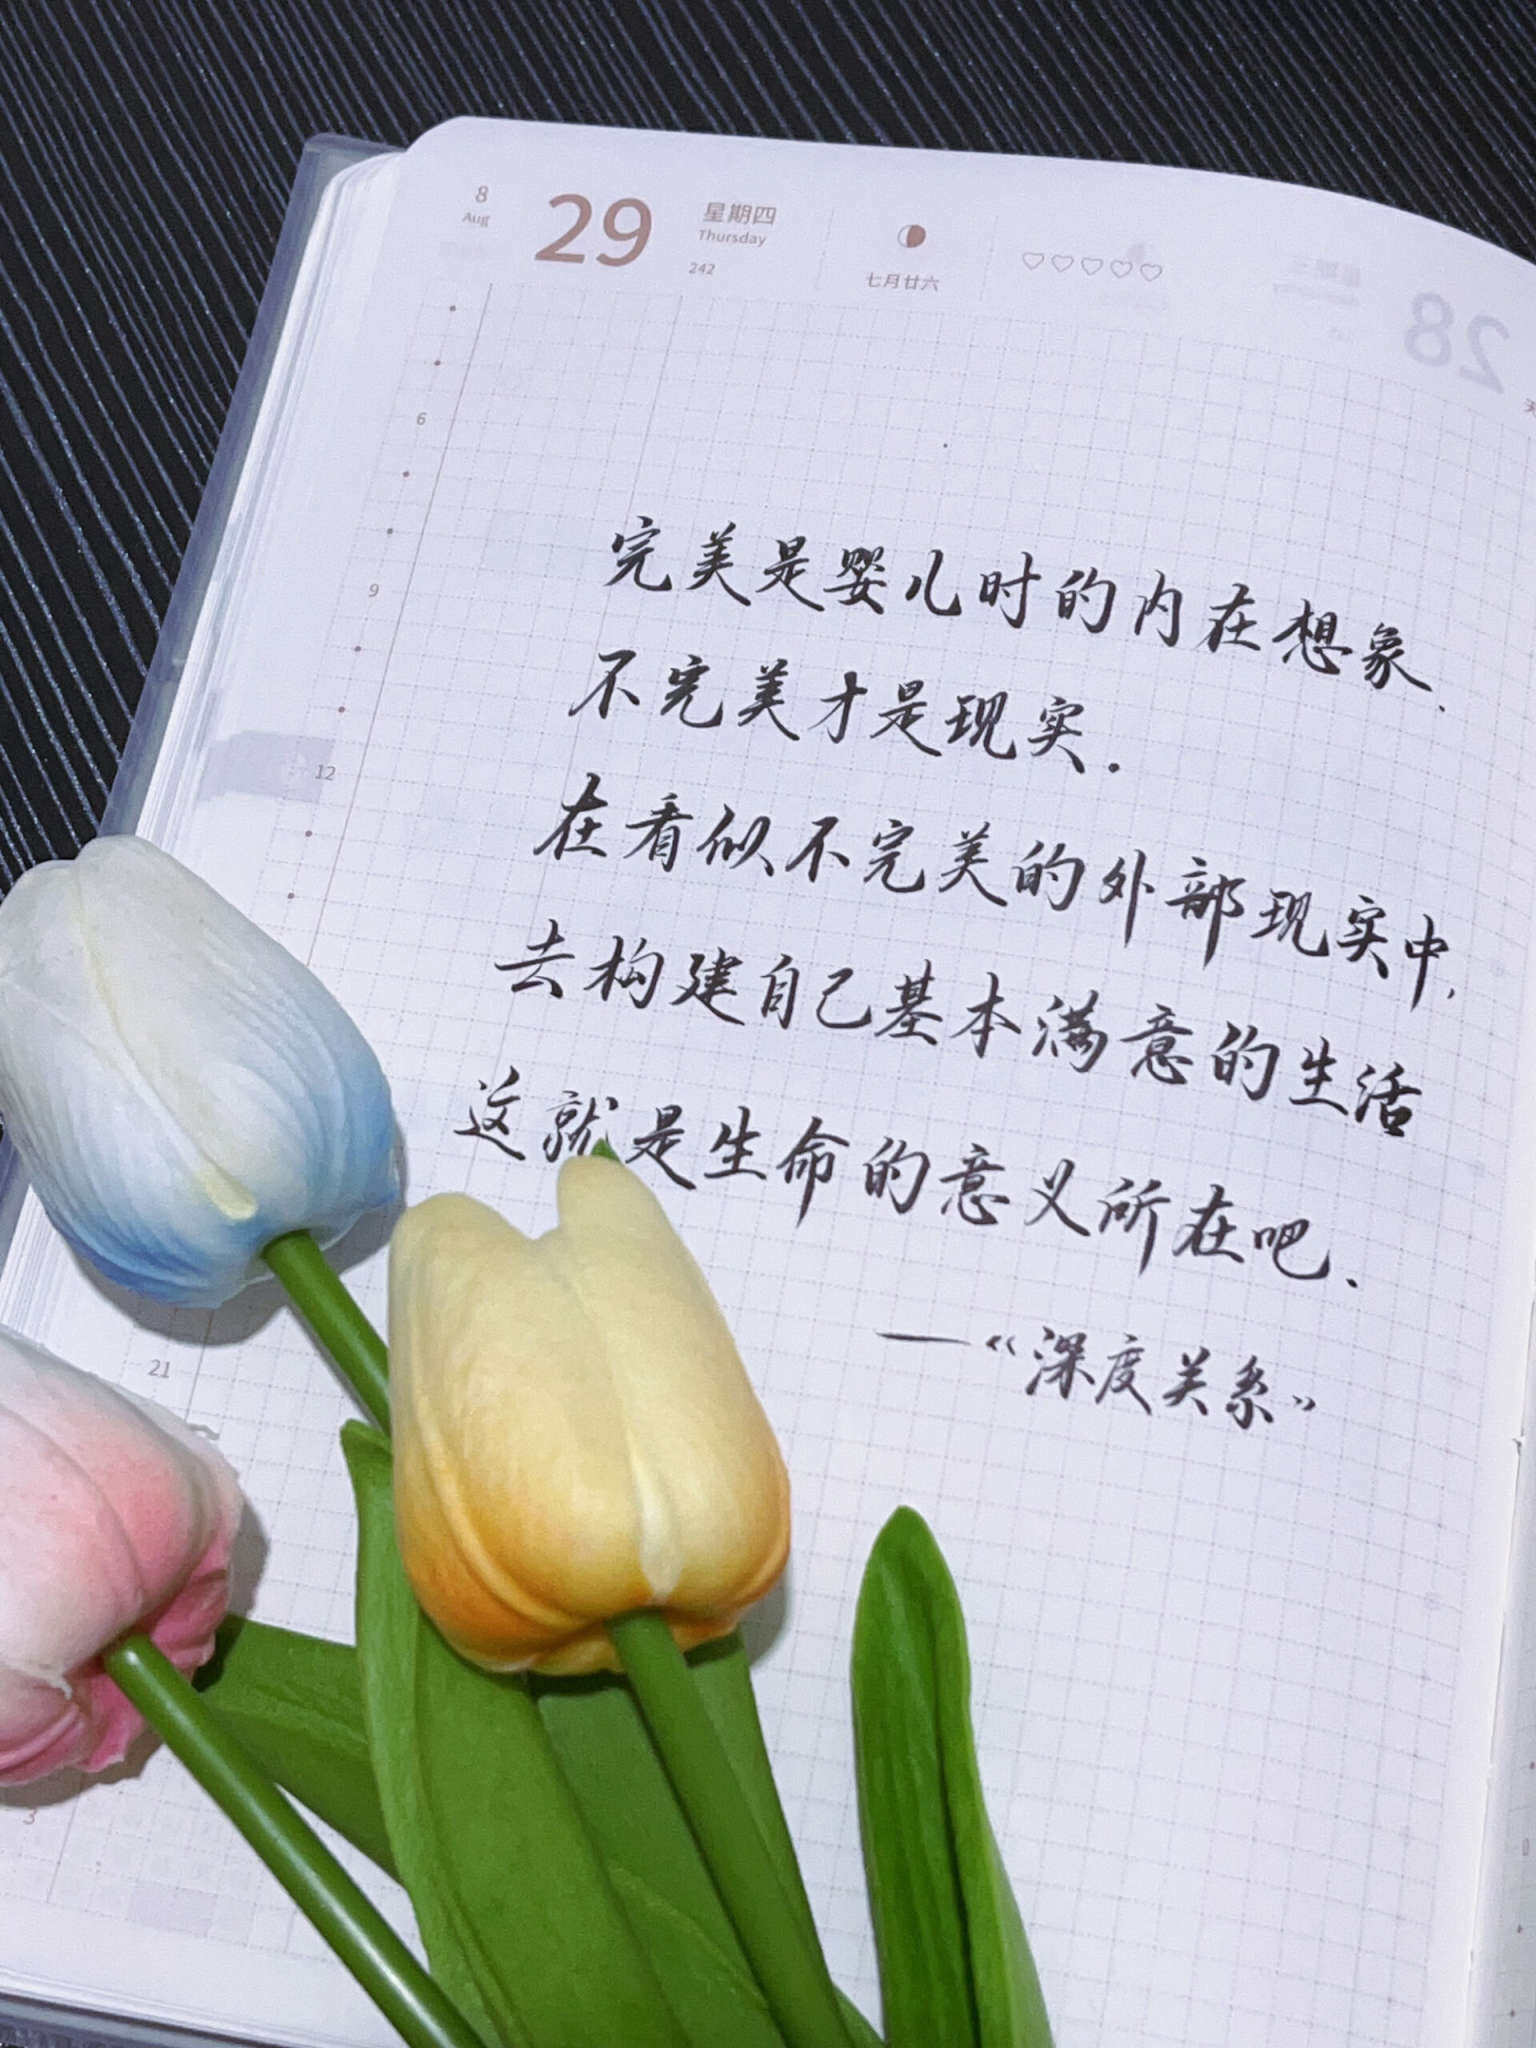 8
Aug
29
星期四
Thursday
242
七月廿六
28
6
9
12
21
3
完美是婴儿时的内在想象、
不完美才是现实.
在看似不完美的外部现实中,
去构建自己基本满意的生活
这就是生命的意义所在吧.
—《深度关系》